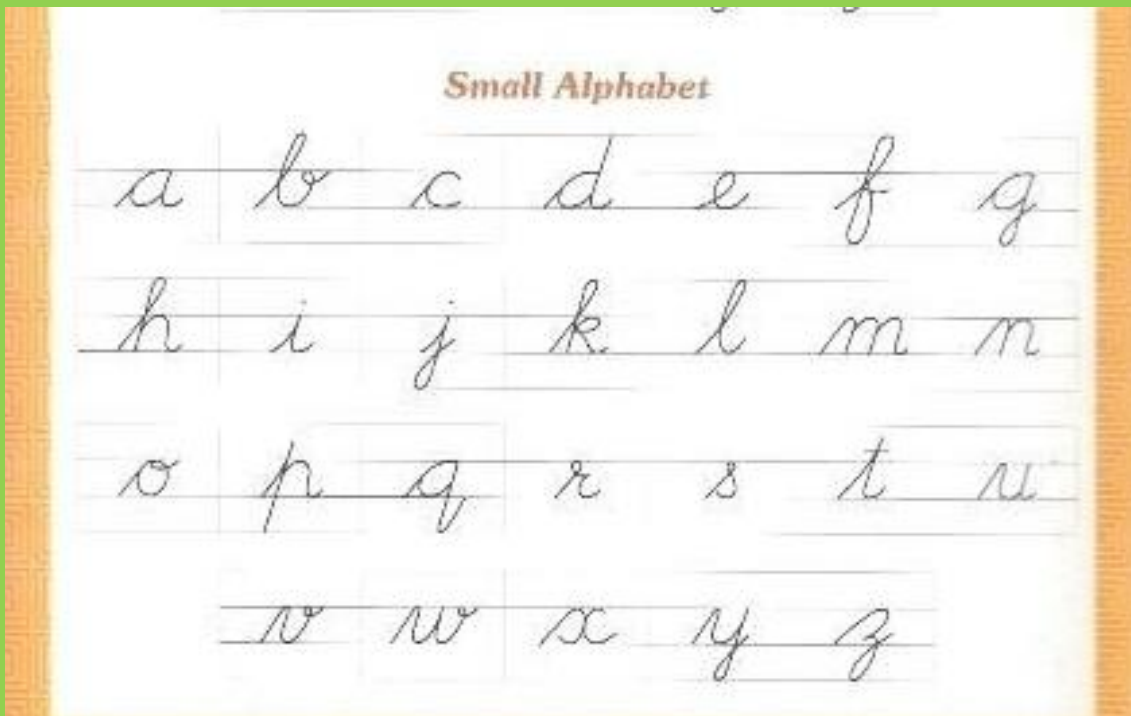 Small Alphabet
a b c d e f g
h i j k l m n
o p q r s t u
v w x y z